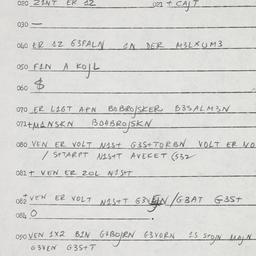 020 ZINT ER 12 021 + CAJT
030 —
040 ER 12 G3PALN IN DER M3LXUM3
050 FIN A KOJL
060 $
070 ER LIGT AFN BOBROJSKER B3SALM3N
071+MINSKN BOBROJSKN
080 VEN ER VOLT NIST G3STORBN VOLT ER NO
/ STARPT NIST AVEKET (S32
081+ VEN ER ZOL NIST
082 +VEN ER VOLT NIST /G3AT G3ST
084 O
090 VEN 1X2 BIN G3BOJRN G3VORN IS SOJN MAJN
G3VEN G3ST